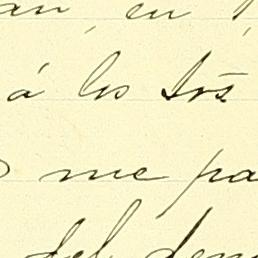 an, en
á los
me pa
del den